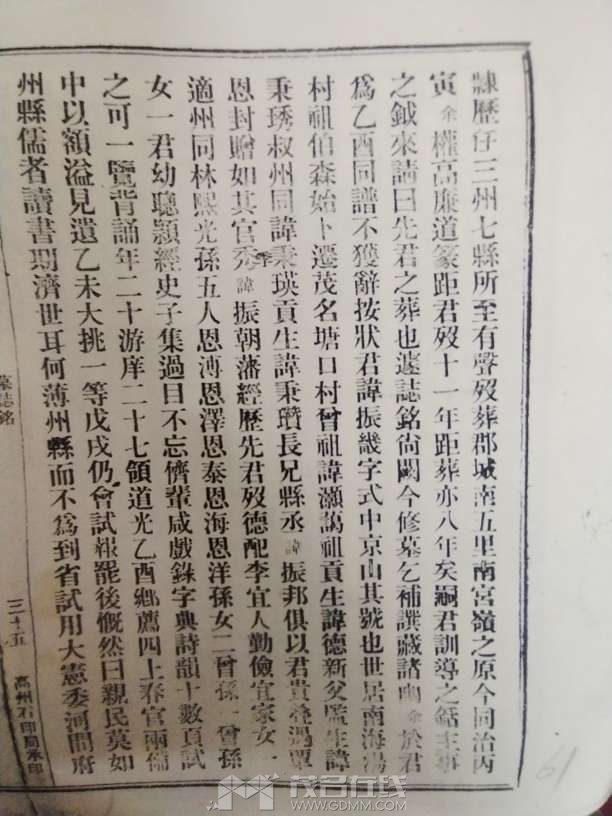 隸歷任三州七縣所至有聲歿葬郡城南五里南宮嶺之原今同治丙
寅余權高廉道篆距君歿十一年距葬亦八年矣嗣君訓導之銛主事
之鉞來請曰先君之葬也遽誌銘尙闕今修墓乞補譔藏諸幽余於君
爲乙酉同譜不獲辭按狀君諱振畿字式中京山其號也世居南海
村祖伯森始卜遷茂名塘口村曾祖諱灝謁祖貢生諱德新父監生諱
秉琇叔州同諱秉瑛貢生諱秉瓚長兄縣丞諱振邦俱以君貴疊遇覃
恩封贈如其官季諱振朝藩經歷先君歿德配李宜人勤儉宜家女一
適州同林熙光孫五人恩溥恩澤恩泰恩海恩洋孫女二曾孫 曾孫
女一君幼聰穎經史子集過目不忘儕輩咸戲錄字典詩韻十數頁試
之可一覽背誦年二十游庠二十七領道光乙酉鄉薦四上春官兩備
中以額溢見遺乙未大挑一等戊戌仍會試報罷後慨然曰親民莫如
州縣儒者讀書期濟世耳何薄州縣而不爲到省試用大憲委河間府
墓誌銘
三十五
高州石印局承印
61
茂名在线
WWW.GDMM.COM